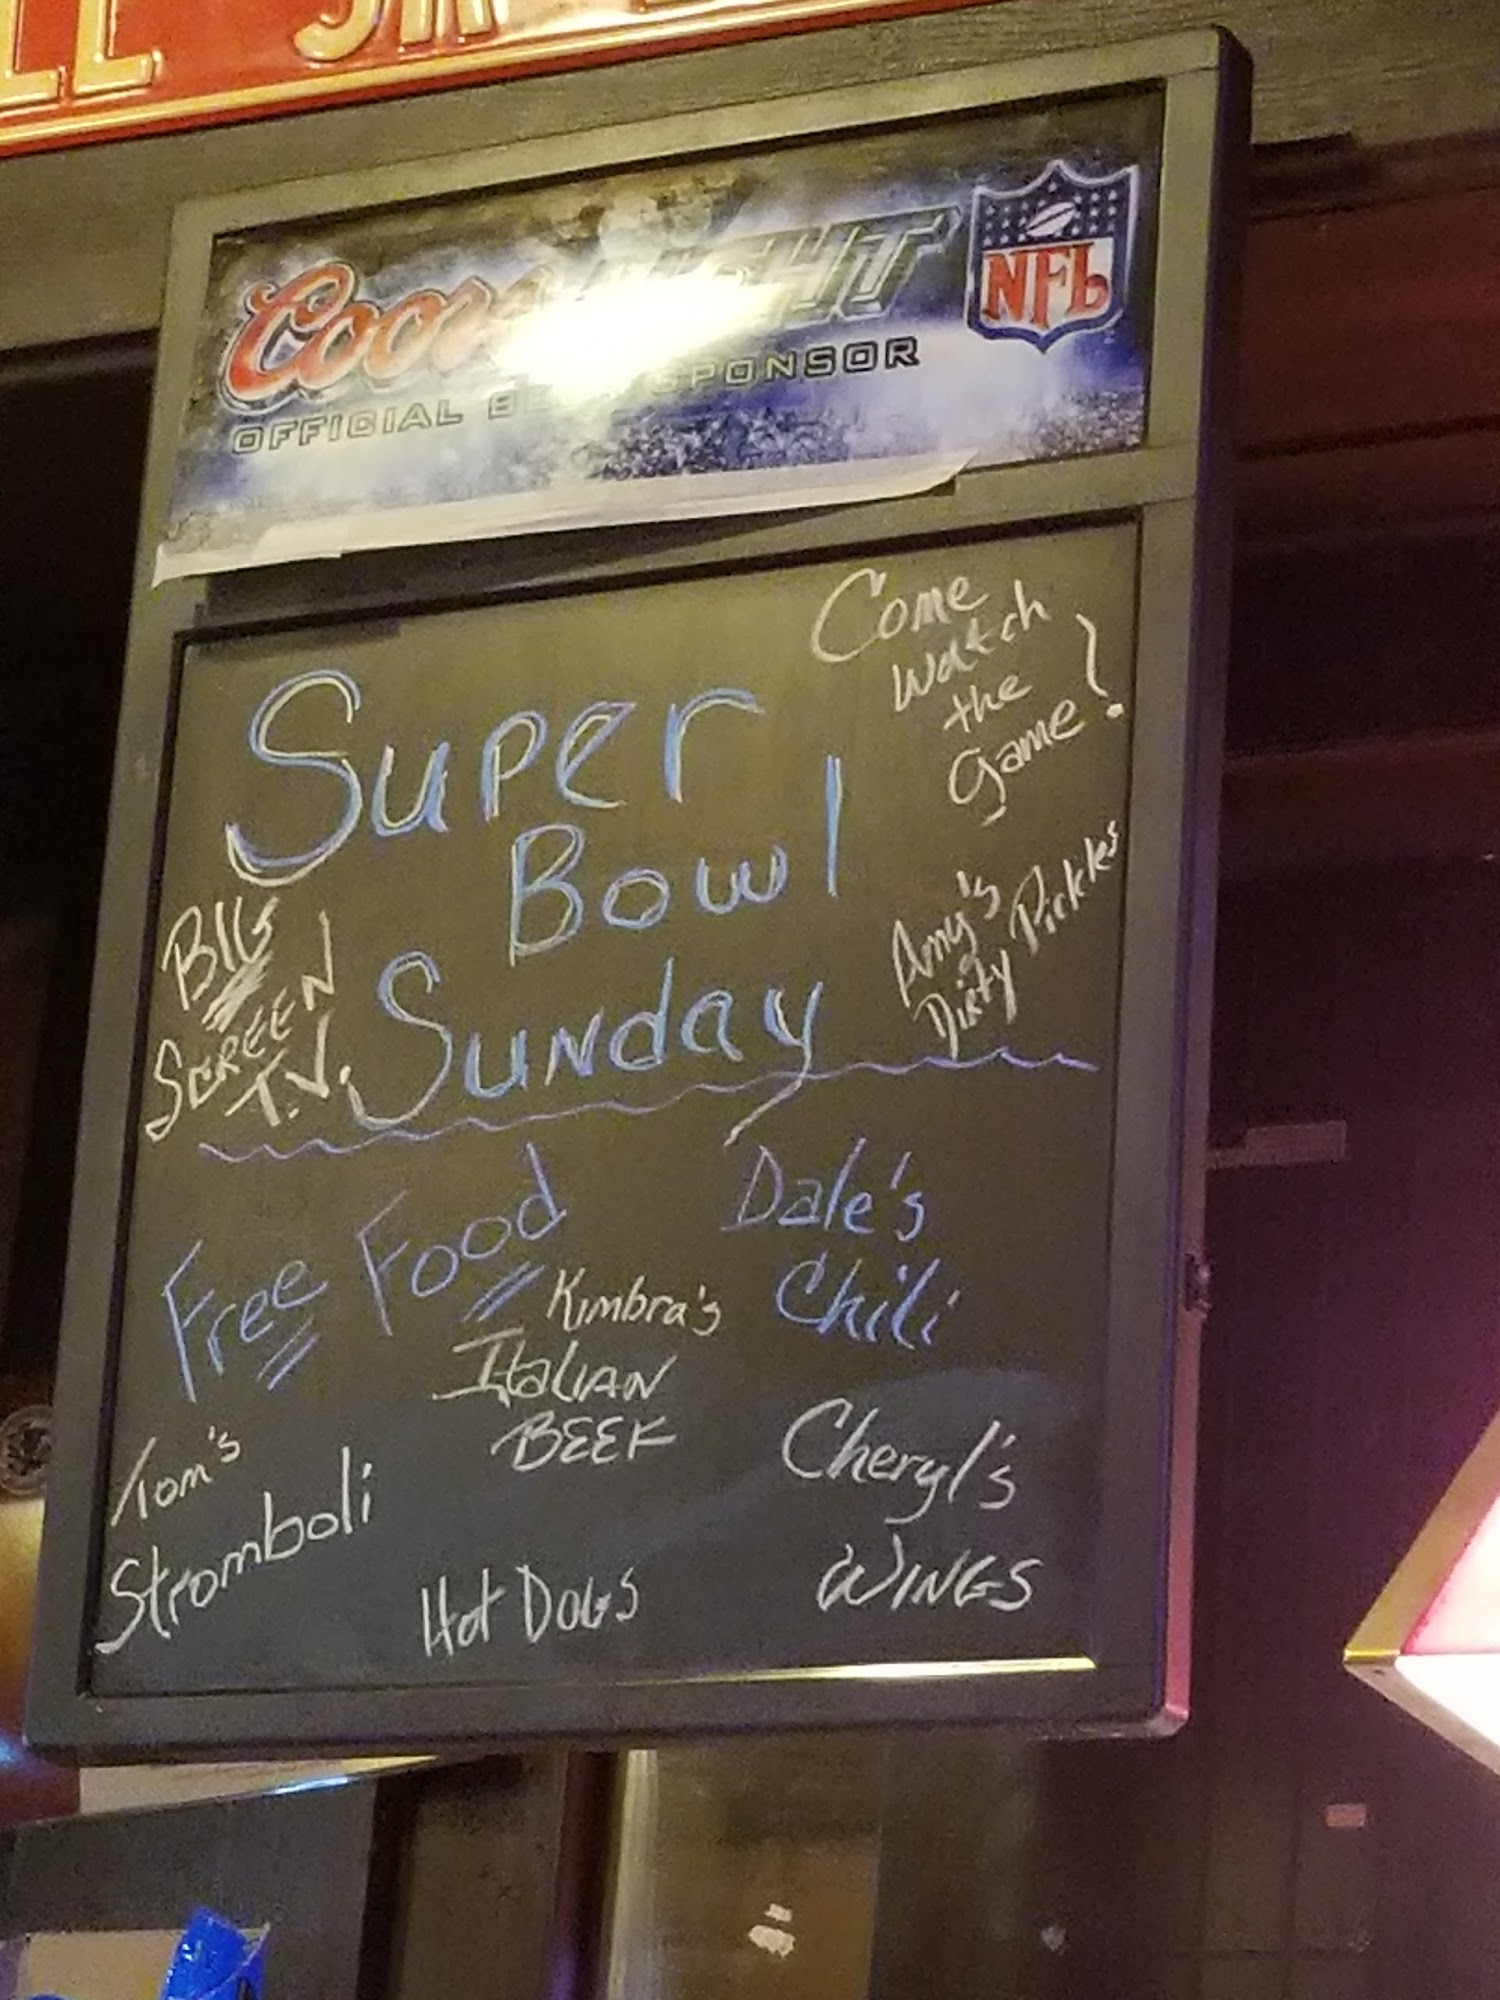 Coors LIGHT
NFL
OFFICIAL BEER SPONSOR
Come
watch
the
Game!
Super
Bowl
Sunday
BIG
SCREEN
T.V.
Amy's
Dirty Pickles
Free Food
Dale's
Chili
Kimbra's
ITALIAN
BEEF
Tom's
Stromboli
Cheryl's
WINGS
Hot DOGS